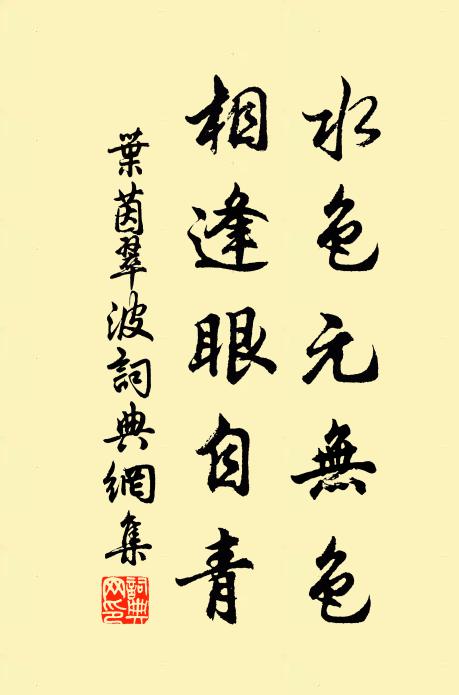 水色元無色
相逢眼自青
葉茵翠波詞典網集
詞典网印